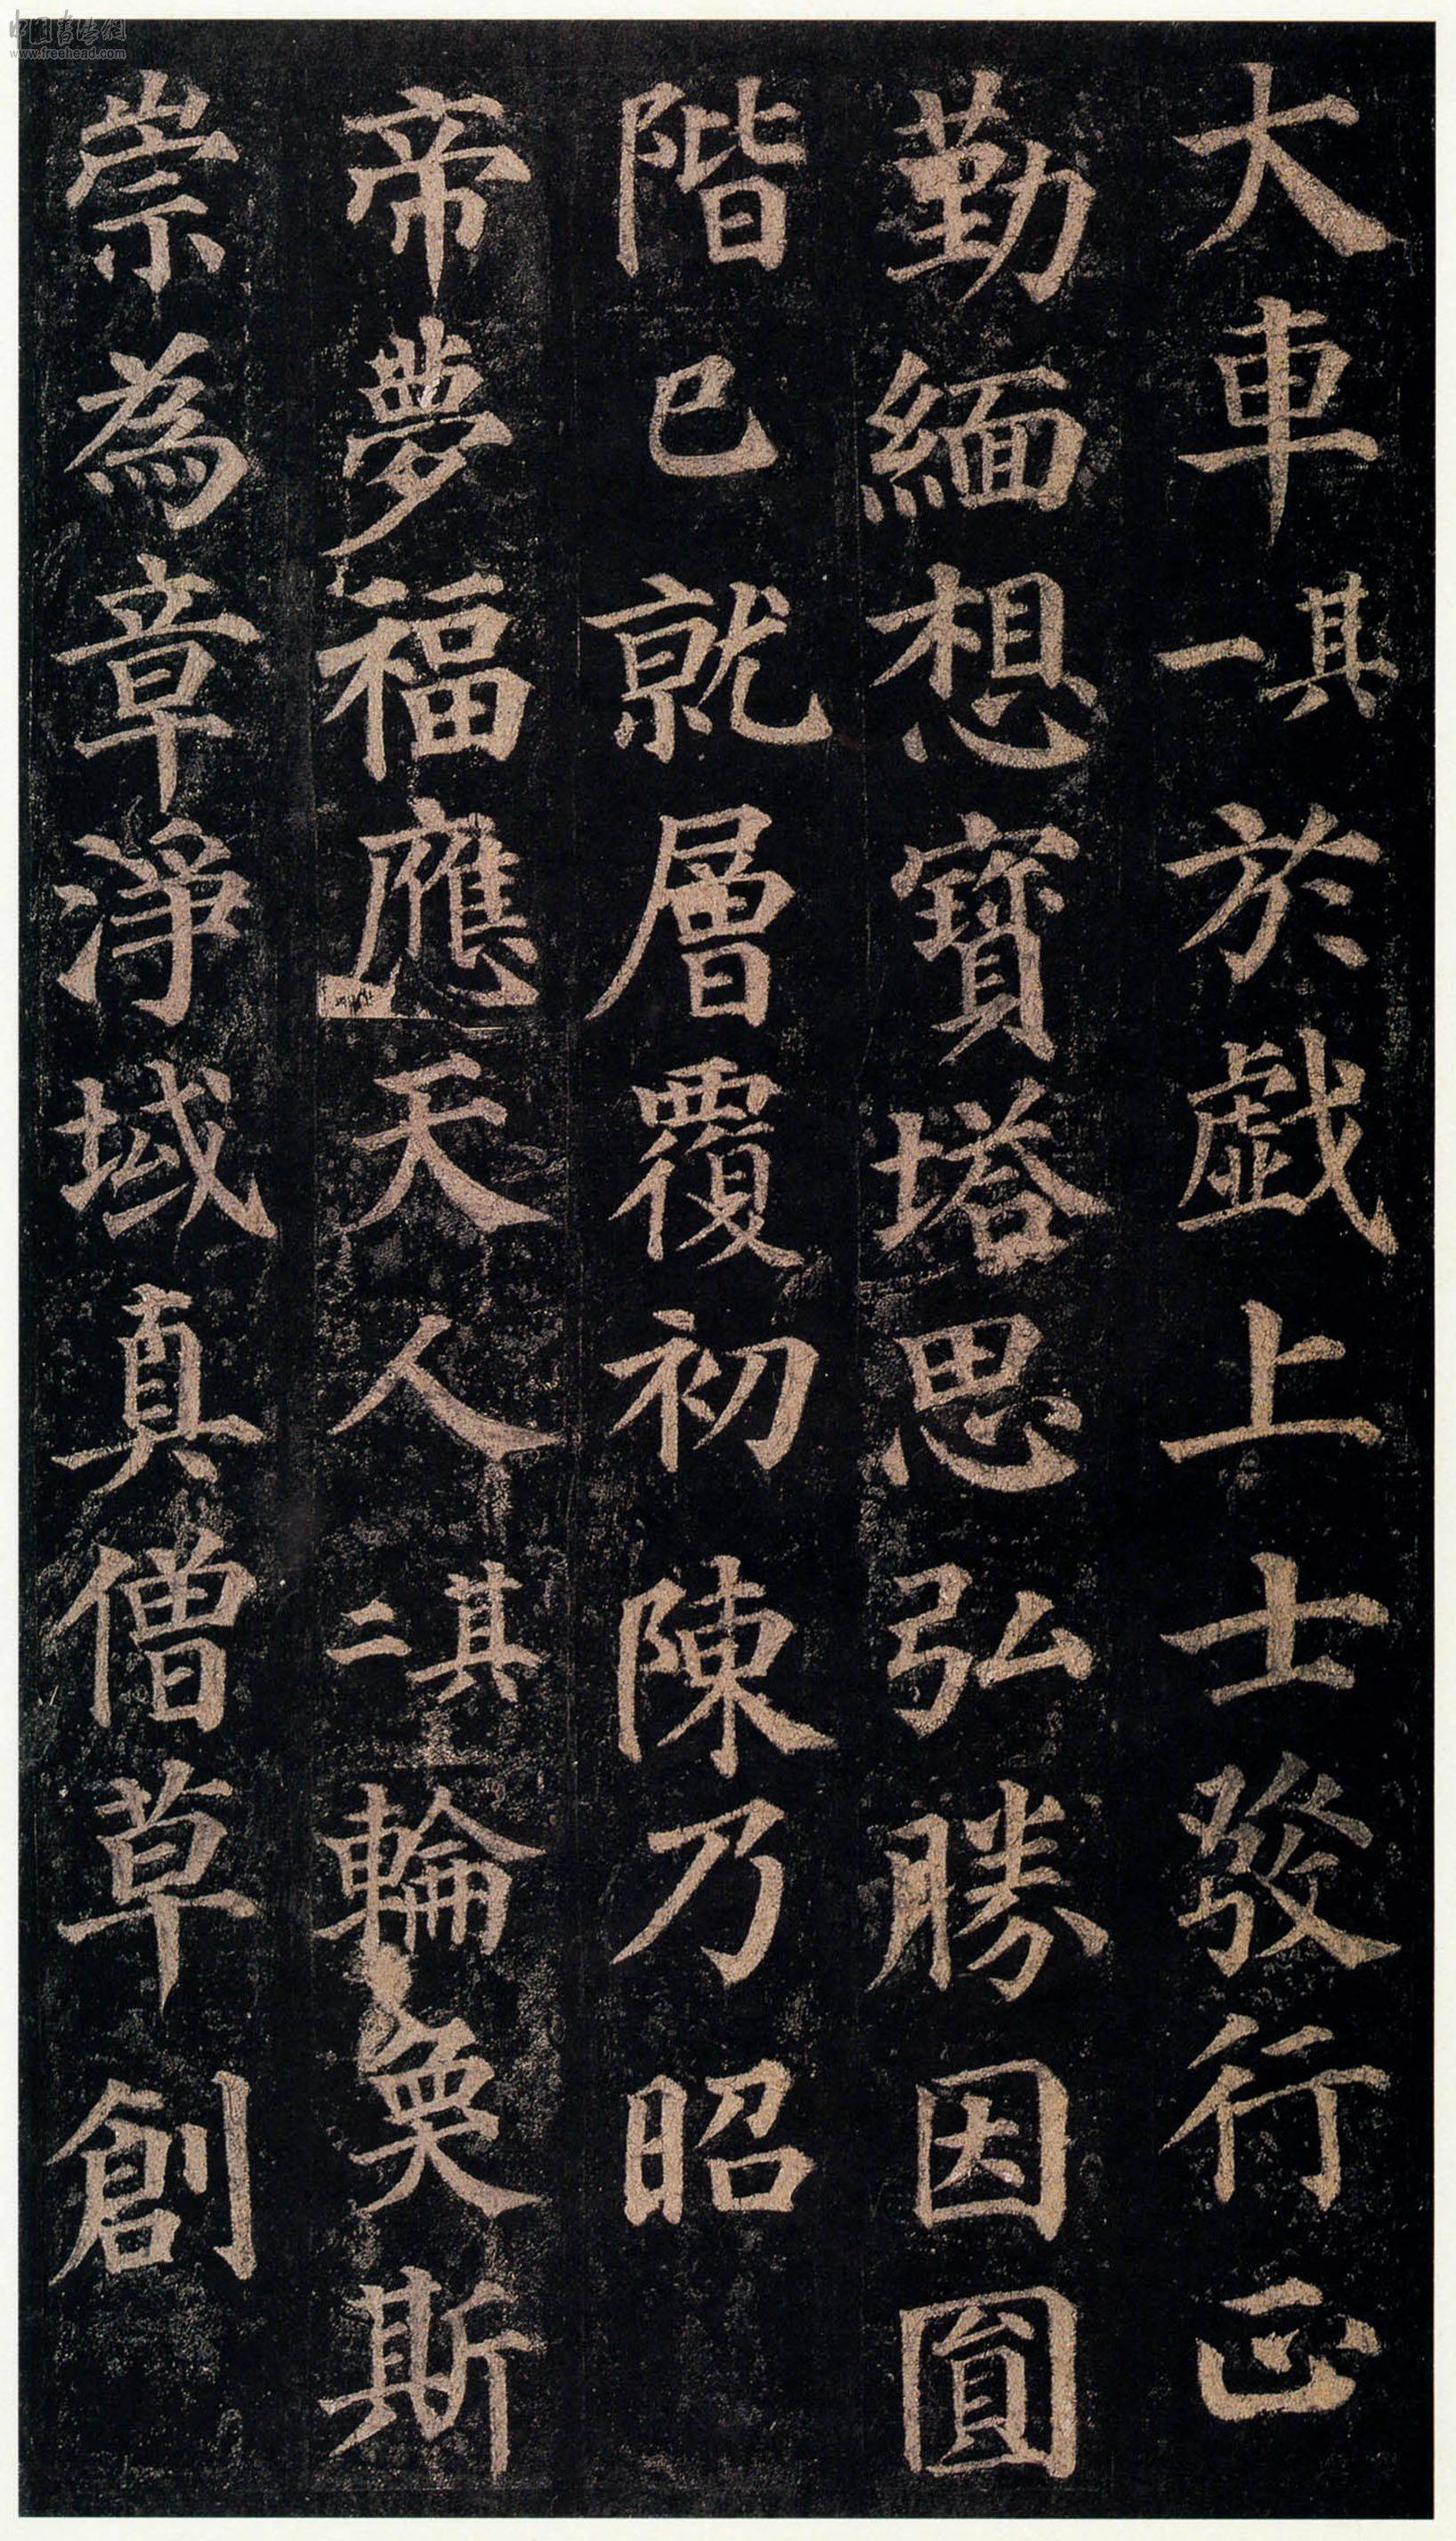 中国书法网
www.freehead.com
大車其一於戯上士發行正
勤緬想寶塔思弘勝因圓
階已就層覆初陳乃昭
帝夢福應天人其二輪奐斯
崇為章淨域真僧草創